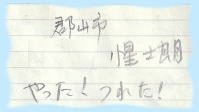 郡山市
惺士朗
やった！つれた！